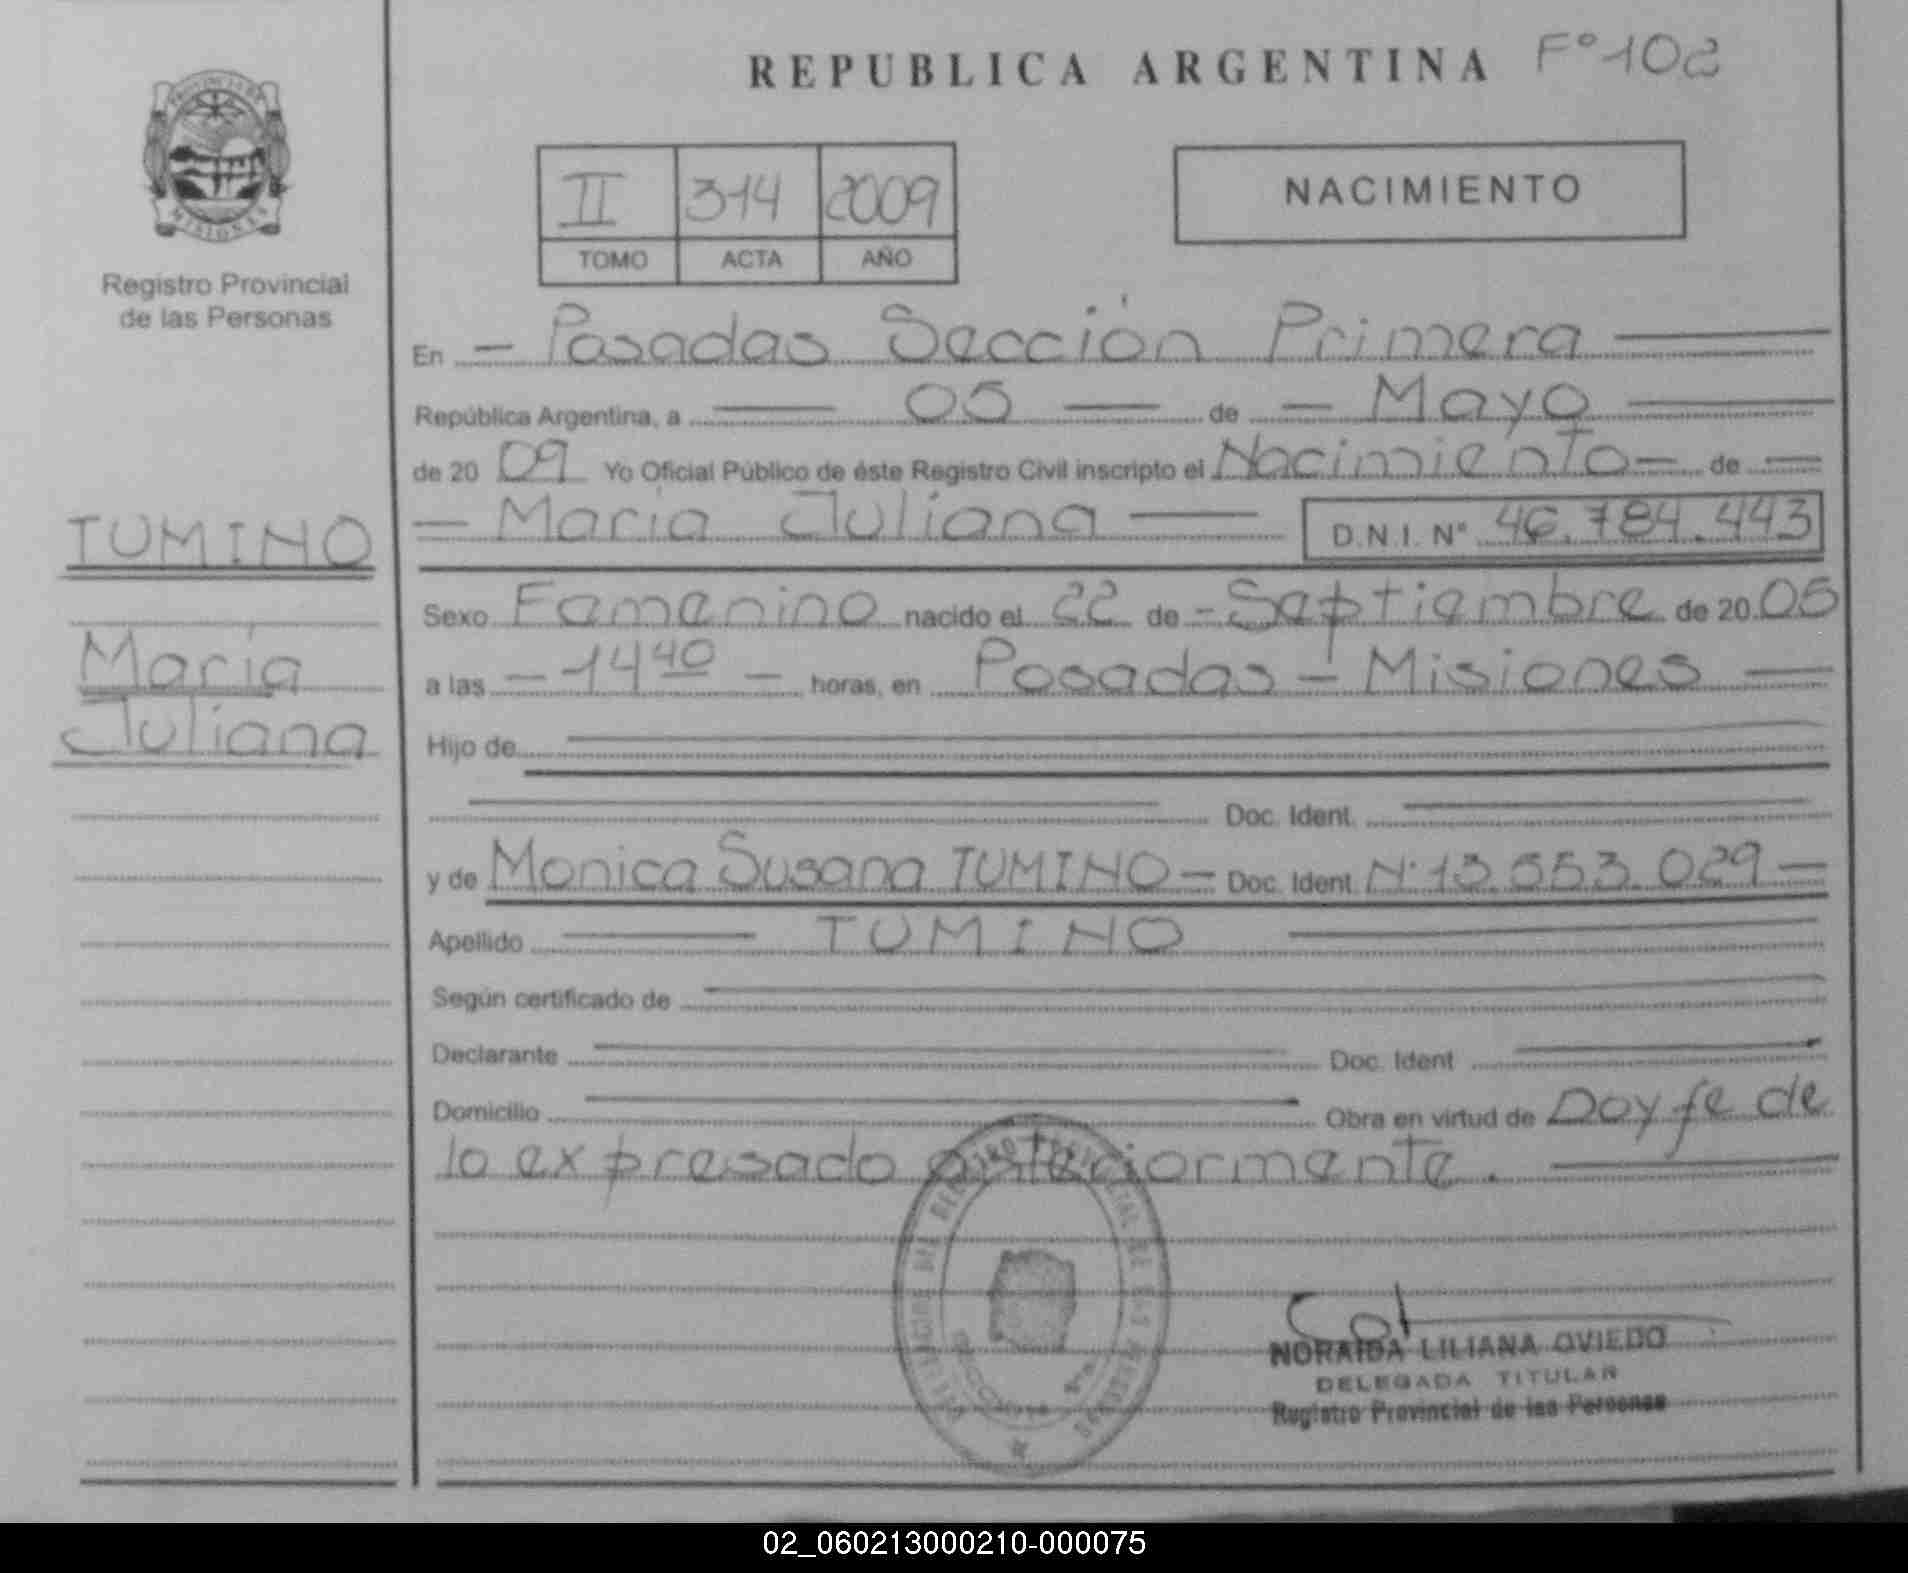 REPUBLICA ARGENTINA Fº 102
PROVINCIA DE
MISIONES
Registro Provincial
de las Personas
II 314 2009
TOMO ACTA AÑO
NACIMIENTO
En - Posadas Sección Primera
República Argentina, a 05 de - Mayo
de 20 09 Yo Oficial Público de éste Registro Civil inscripto el Nacimiento - de -
- Maria Juliana D.N.I. Nº 46.784.443
TUMINO
Maria
Juliana
Sexo Femenino nacido el 22 de - Septiembre de 20 05
a las - 14 40 - horas, en Posadas - Misiones -
Hijo de
Doc. Ident.
y de Monica Susana TUMINO - Doc. Ident. Nº 13.553.029 -
Apellido TUMINO
Según certificado de
Declarante Doc. Ident
Domicilio Obra en virtud de Doy fe de
lo expresado anteriormente.
NORAIDA LILIANA OVIEDO
DELEGADA TITULAR
Registro Provincial de las Personas
02_060213000210-000075